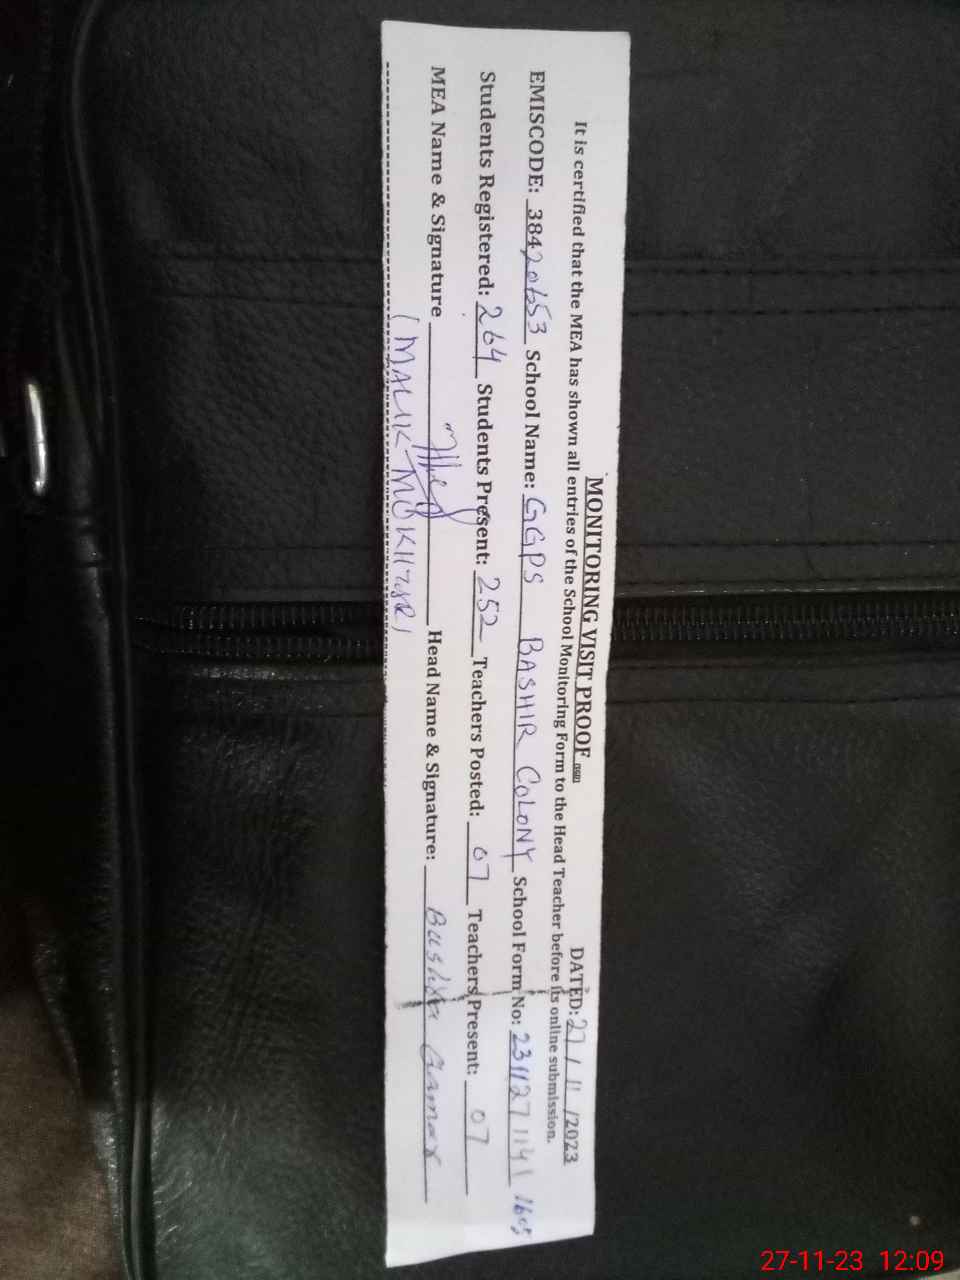 MONITORING VISIT PROOF DATED: 27/11/2023
It is certified that the MEA has shown all entries of the School Monitoring Form to the Head Teacher before its online submission.
EMISCODE: 38420653 School Name: GGPS BASHIR COLONY School Form No: 231127 1141
Students Registered: 264 Students Present: 252 Teachers Posted: 07 Teachers Present: 07
MEA Name & Signature Head Name & Signature: Bushra
(MALIK
27-11-23 12:09